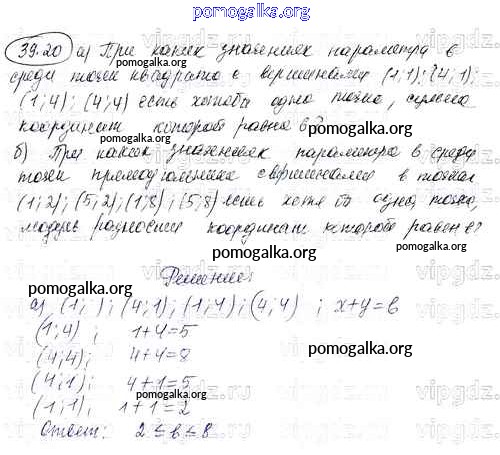 pomogalka.org
39.20 а) При каких значениях параметра в
среди точек квадрата с вершинами (1;1); (4;1);
(1;4); (4;4) есть хотя бы одна точка, сумма
координат которой равна в?
б) При каких значениях параметра в среди
точек прямоугольника с вершинами в точках
(1;2); (5;2); (1;8); (5;8) есть хотя бы одна точка,
модуль разности координат которой равен в?
Решение:
а) (1; ); (4;1); (1;4); (4;4) ; x+y=в
(1;4) ; 1+4=5
(4;4); 4+4=8
(4;1); 4+1=5
(1;1); 1+1=2
Ответ: 2 ≤ в ≤ 8
pomogalka.org
pomogalka.org
pomogalka.org
pomogalka.org
pomogalka.org
pomogalka.org
pomogalka.org
pomogalka.org
pomogalka.org
vipgdz
vipgdz